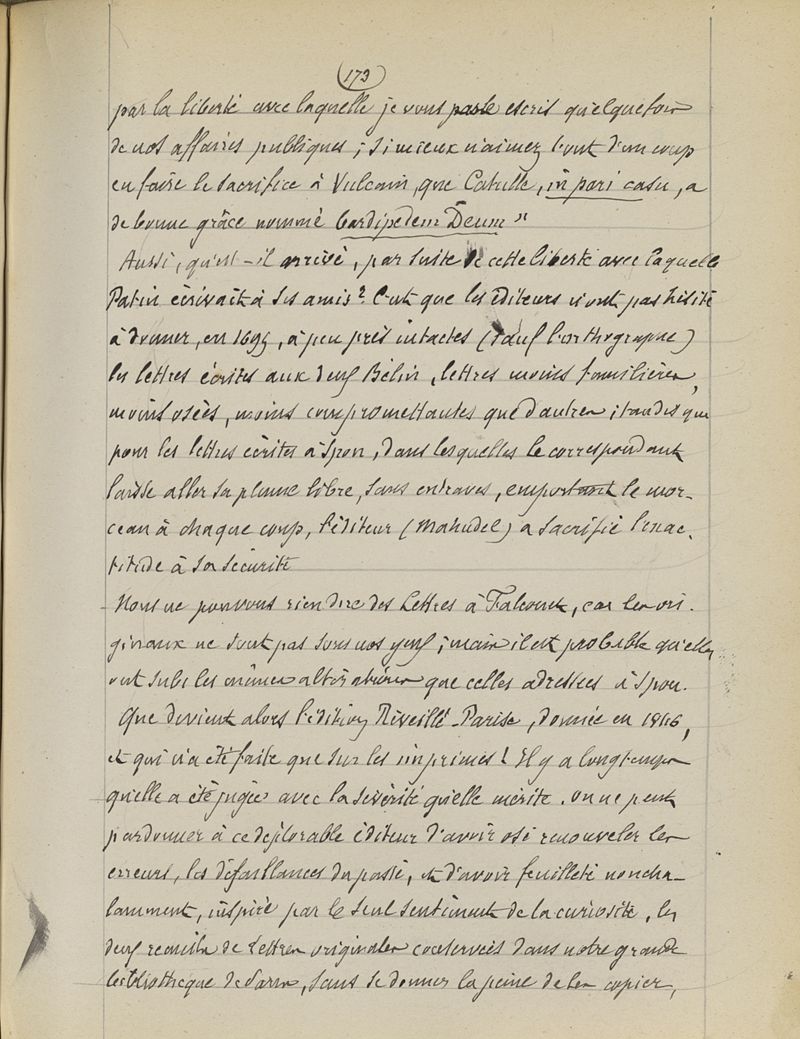 173
par la liberté avec laquelle je vous parle escris quelquefois
de nos affaires publiques ; si mieux n'aimez tout d'un coup
en faire le sacrifice à Vulcain, que Catulle, in pari casu, a
de bonne grâce nommé tardipedem Deum"
Aussi, qu'est-il arrivé, par suite de cette liberté avec laquelle
Patin écrivait à ses amis ? C'est que les éditeurs n'ont pas hésité
à donner, en 1695, à peu près intactes (sauf l'orthographe)
les lettres écrites aux deux Bélin, lettres moins familières,
moins osées, moins compromettantes que d'autres ; tandis que
pour les lettres écrites à Spon, dans lesquelles le correspondant
laisse aller sa plume libre, sans entraves, emportant le mor-
ceau à chaque coup, l'éditeur (Mahudel) a sacrifié l'exac-
titude à sa sécurité
Nous ne pouvons rien dire des Lettres à Falconet, car les ori-
ginaux ne sont pas sous nos yeux ; mais il est probable qu'elles
ont subi les mêmes altérations que celles adressées à Spon.
Que devient alors l'édition Réveillé-Parise, donnée en 1846,
et qui n'a été faite que sur les imprimés ! Il y a longtemps
qu'elle a été jugée avec la sévérité qu'elle mérite. On ne peut
pardonner à ce déplorable éditeur d'avoir osé renouveler les
erreurs, les défaillances du passé, et d'avoir feuilleté noncha-
lamment, inspiré par le seul sentiment de la curiosité, les
deux recueils de Lettres originales conservées dans notre grande
bibliothèque de Paris, sans se donner la peine de les copier,